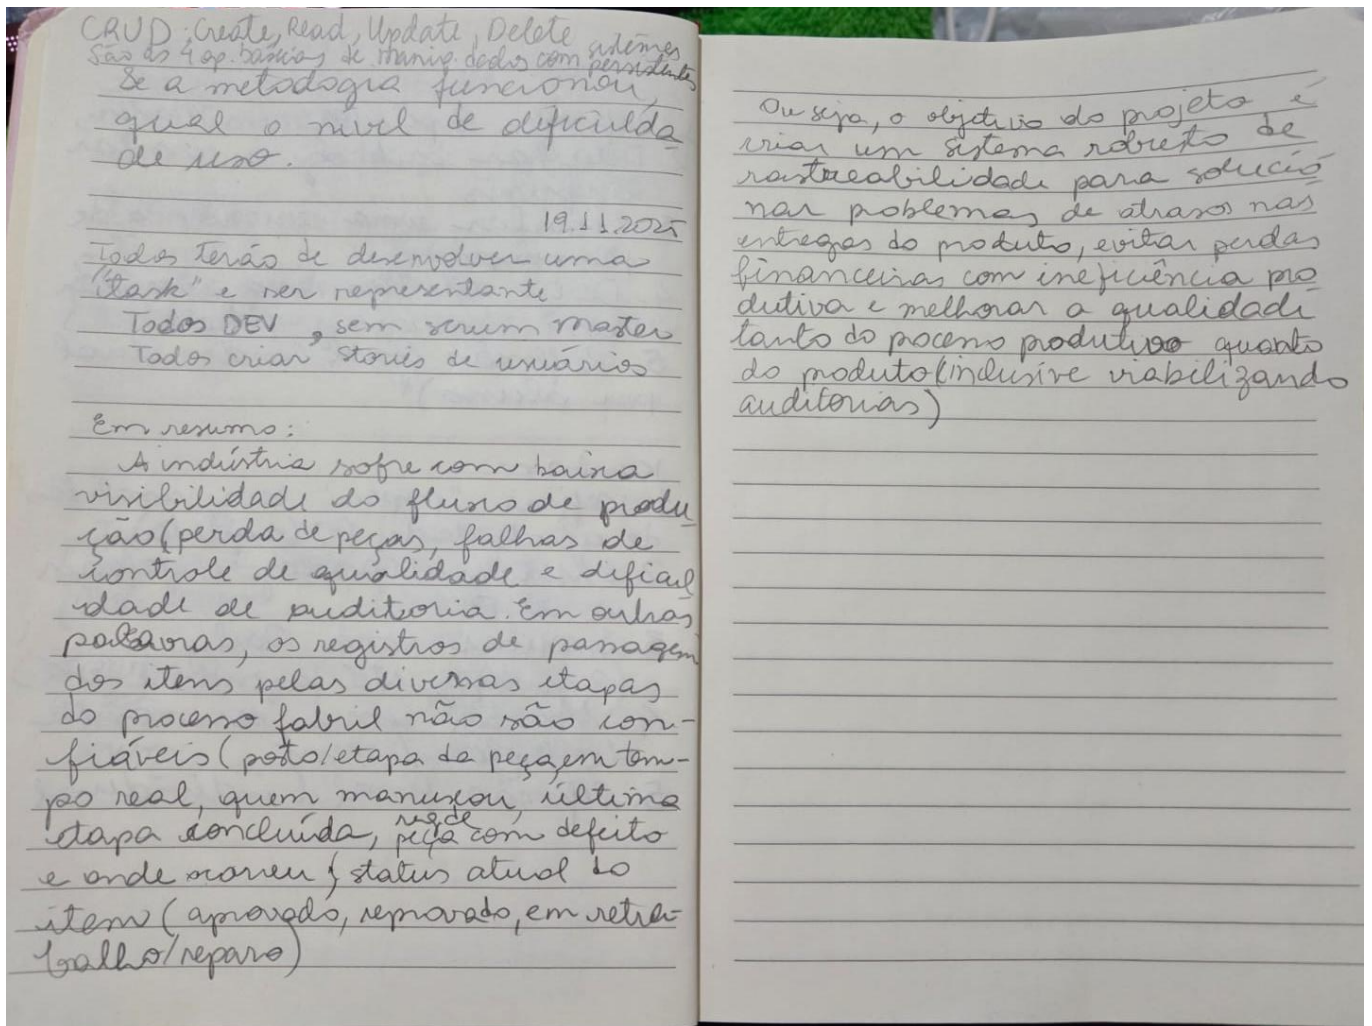 CRUD: Create, Read, Update, Delete
São as 4 op. básicas de manip. dados com sistemas
persistentes
Se a metodogia funcionou,
qual o nivel de dificulda
de uso.
19.11.2025
Todos terão de desenvolver uma
"task" e ser representante
Todos DEV, sem scrum master
Todos criar stories de usuários
Em resumo:
A indústria sofre com baixa
visibilidade do fluxo de produ
ção (perda de peças, falhas de
controle de qualidade e dificul
dade de auditoria. Em outras
palavras, os registros de passagem
dos itens pelas diversas etapas
do processo fabril não são con-
fiáveis (posto/etapa da peça em tem-
po real, quem manuseou, última
etapa concluída, peça com defeito
e onde ocorreu, status atual do
item (aprovado, reprovado, em retra-
balho/reparo)
Ou seja, o objetivo do projeto é
criar um sistema robusto de
rastreabilidade para solucio
nar problemas de atrasos nas
entregas do produto, evitar perdas
financeiras com ineficiência pro
dutiva e melhorar a qualidade
tanto do pocesso produtivo quanto
do produto (inclusive viabilizando
auditorias)